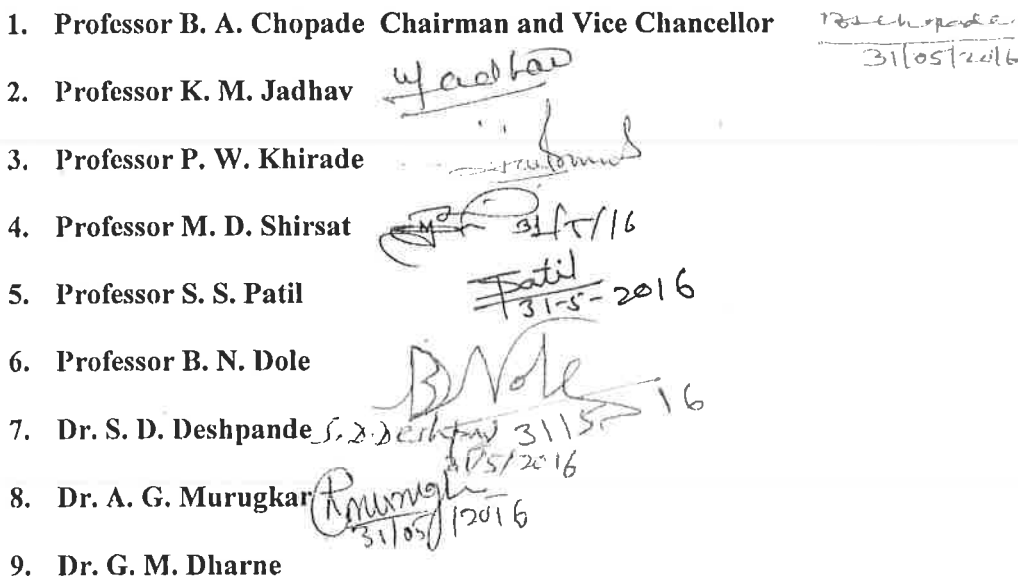 1. Professor B. A. Chopade Chairman and Vice Chancellor
31/05/2016
2. Professor K. M. Jadhav
Jadhav
3. Professor P. W. Khirade
4. Professor M. D. Shirsat
31/5/16
5. Professor S. S. Patil
Patil
31-5-2016
6. Professor B. N. Dole
BNDole
7. Dr. S. D. Deshpande S. D. Deshpande 31/5/16
31/05/2016
8. Dr. A. G. Murugkar
31/05/2016
9. Dr. G. M. Dharne